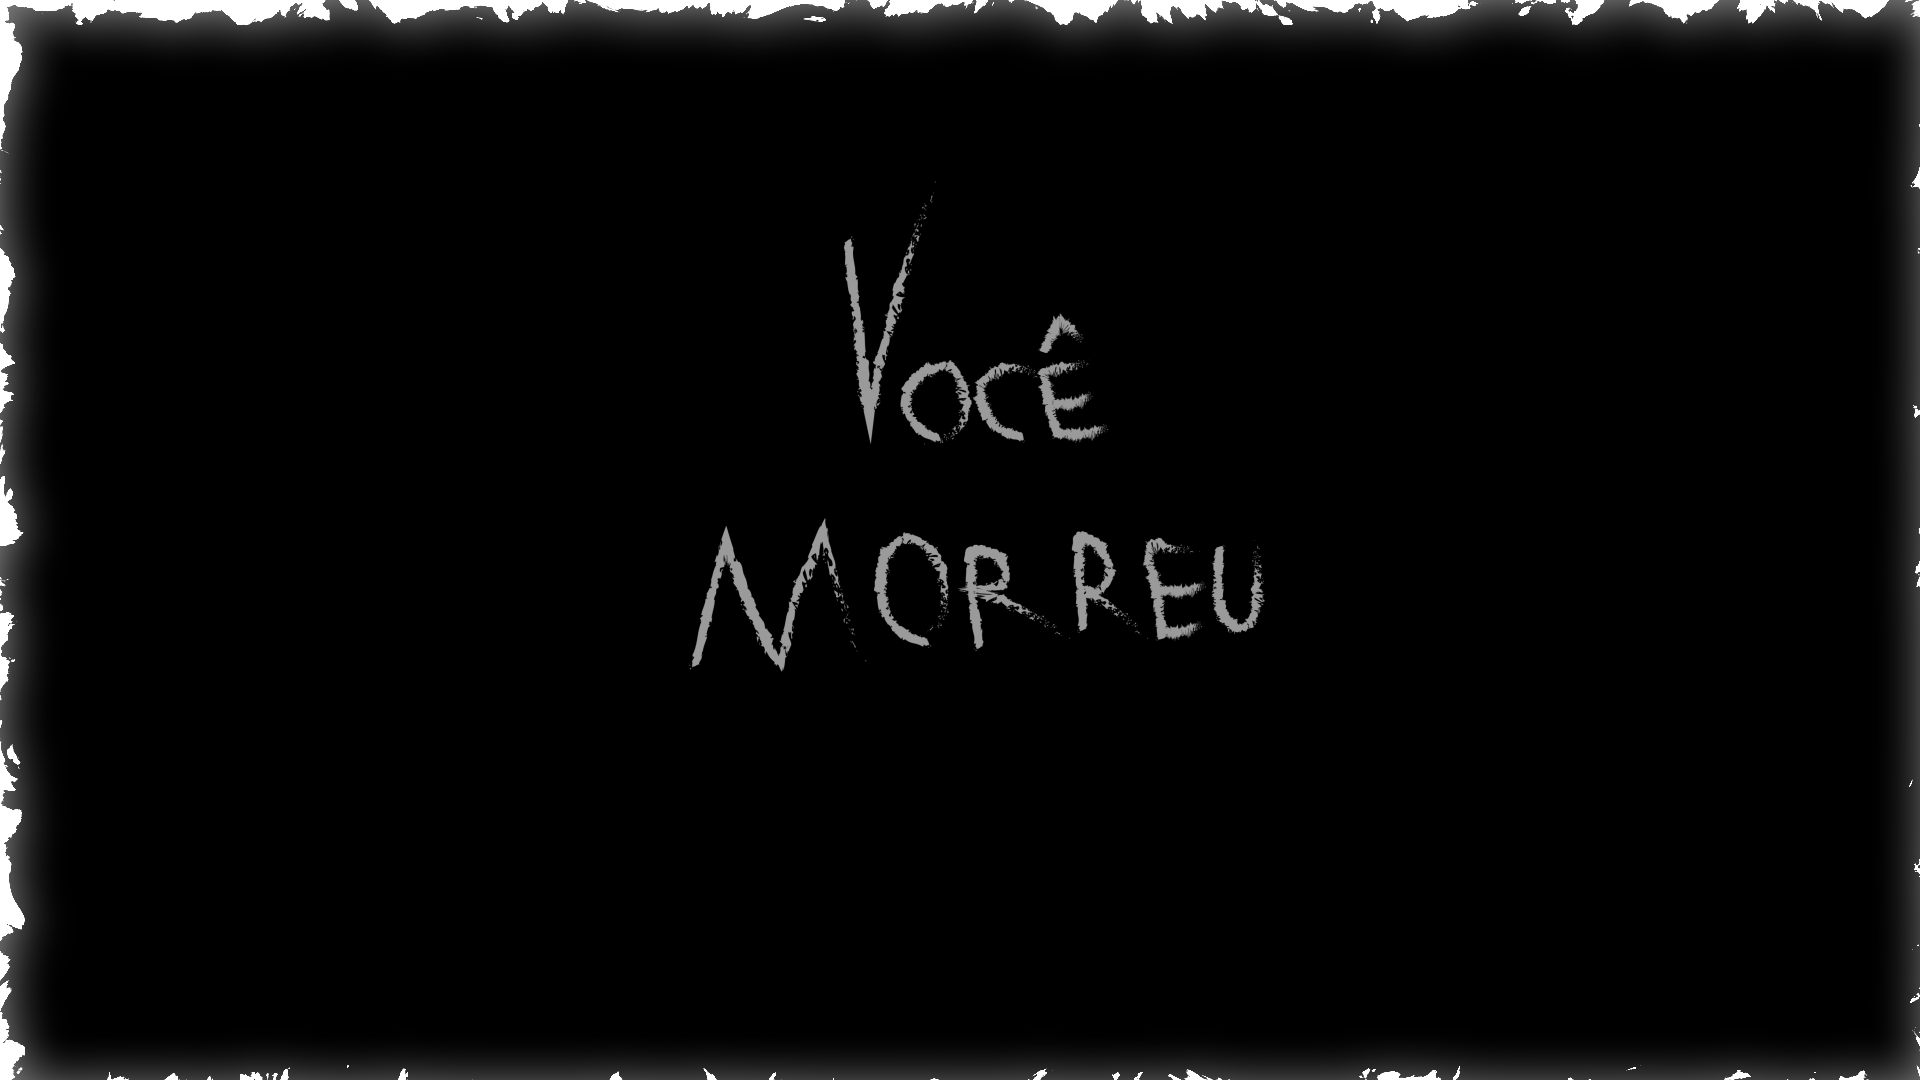 VOCÊ
MORREU